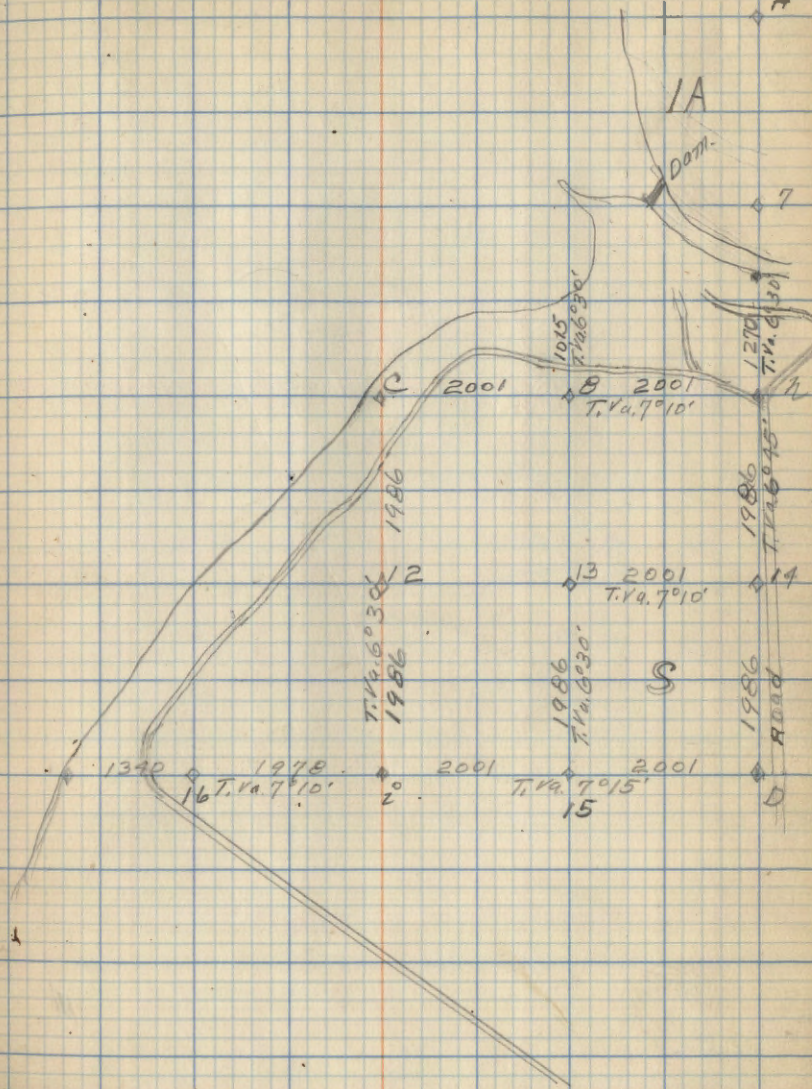 1A
Dam.
7
1015
T.Va.6°30'
1270
T.Va.6°30'
C
2001
8
2001
T.Va.7°10'
1986
1986
T.Va.6°45'
12
13
2001
T.Va.7°10'
14
T.Va.6°30'
1986
1986
T.Va.6°30'
S
1986
Road
1340
1978
2001
2001
16
T.Va.7°10'
T.Va.7°15'
15
D